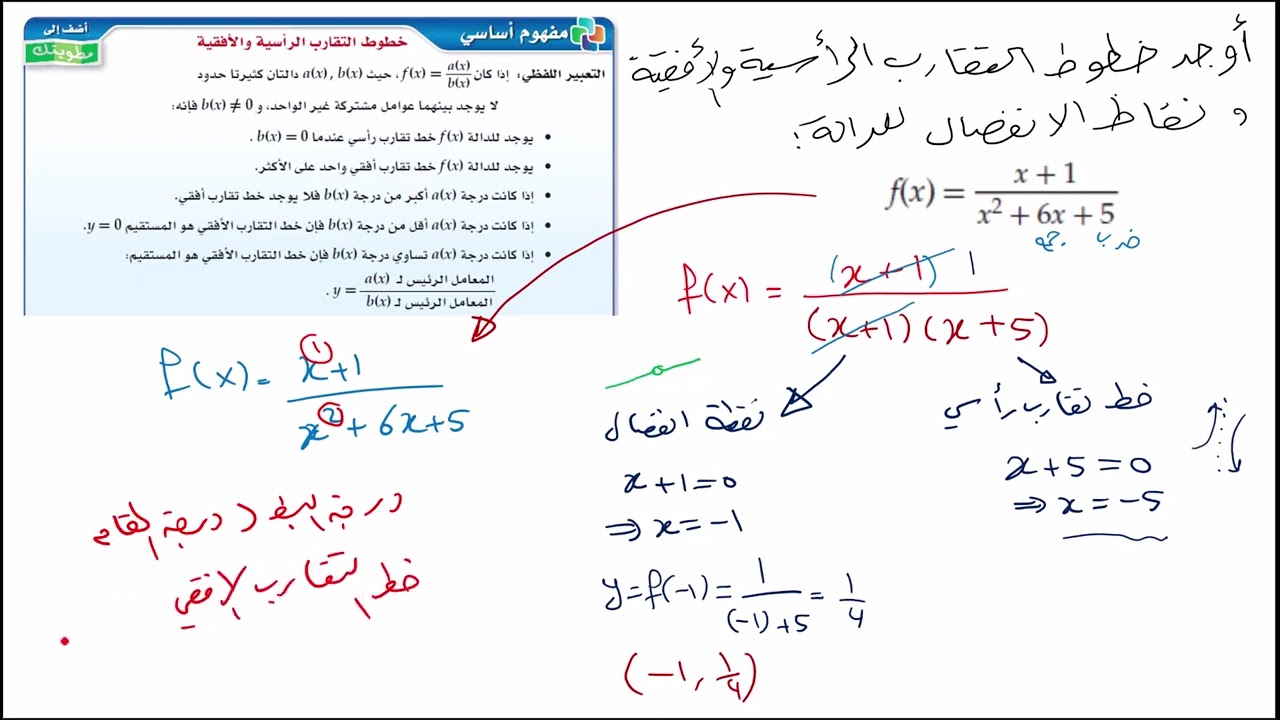 أضف إلى
مطويتك
مفهوم أساسي
خطوط التقارب الرأسية والأفقية
التعبير اللفظي: إذا كان f(x) = a(x)/b(x)، حيث a(x), b(x) دالتان كثيرتا حدود
لا يوجد بينهما عوامل مشتركة غير الواحد، و b(x) ≠ 0 فإنه:
• يوجد للدالة f(x) خط تقارب رأسي عندما b(x) = 0 .
• يوجد للدالة f(x) خط تقارب أفقي واحد على الأكثر.
• إذا كانت درجة a(x) أكبر من درجة b(x) فلا يوجد خط تقارب أفقي.
• إذا كانت درجة a(x) أقل من درجة b(x) فإن خط التقارب الأفقي هو المستقيم y = 0.
• إذا كانت درجة a(x) تساوي درجة b(x) فإن خط التقارب الأفقي هو المستقيم:
y = المعامل الرئيس لـ a(x) / المعامل الرئيس لـ b(x) .
أوجد خطوط التقارب الرأسية والأفقية
و نقاط الانفصال للدالة:
f(x) = (x + 1)/(x² + 6x + 5)
ضرب جمع
f(x) = (x+1) 1 / (x+1)(x+5)
خط تقارب رأسي
x+5=0
⇒ x=-5
نقطة انفصال
x+1=0
⇒ x=-1
y=f(-1)= 1/((-1)+5) = 1/4
(-1, 1/4)
f(x)= (x¹+1)/(x²+6x+5)
درجة البسط < درجة المقام
خط التقارب الأفقي